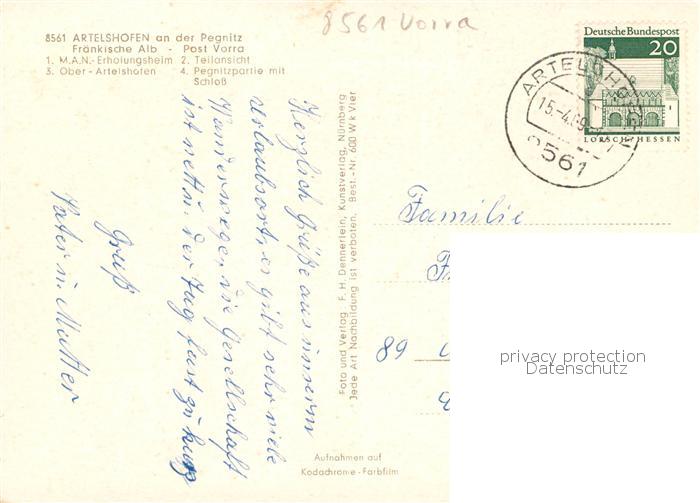 8561 Vorra
8561 ARTELSHOFEN an der Pegnitz
Fränkische Alb - Post Vorra
1. M.A.N.-Erholungsheim 2. Teilansicht
3. Ober-Artelshofen 4. Pegnitzpartie mit
Schloß
Deutsche Bundespost
20
LORSCH/HESSEN
ARTELSHOFEN
15.-4.69
8561
Herzlich Grüße aus unserm
Urlaubsort, es gibt sehr viele
Wanderwege, die Gesellschaft
ist nett u. der Tag fast zu kurz
Gruß
Vater u. Mutter
Foto und Verlag F. H. Dennerlein, Kunstverlag, Nürnberg
Jede Art Nachbildung ist verboten. Best.-Nr. 600 W/k Vier
Familie
89
privacy protection
Datenschutz
Aufnahmen auf
Kodachrome-Farbfilm